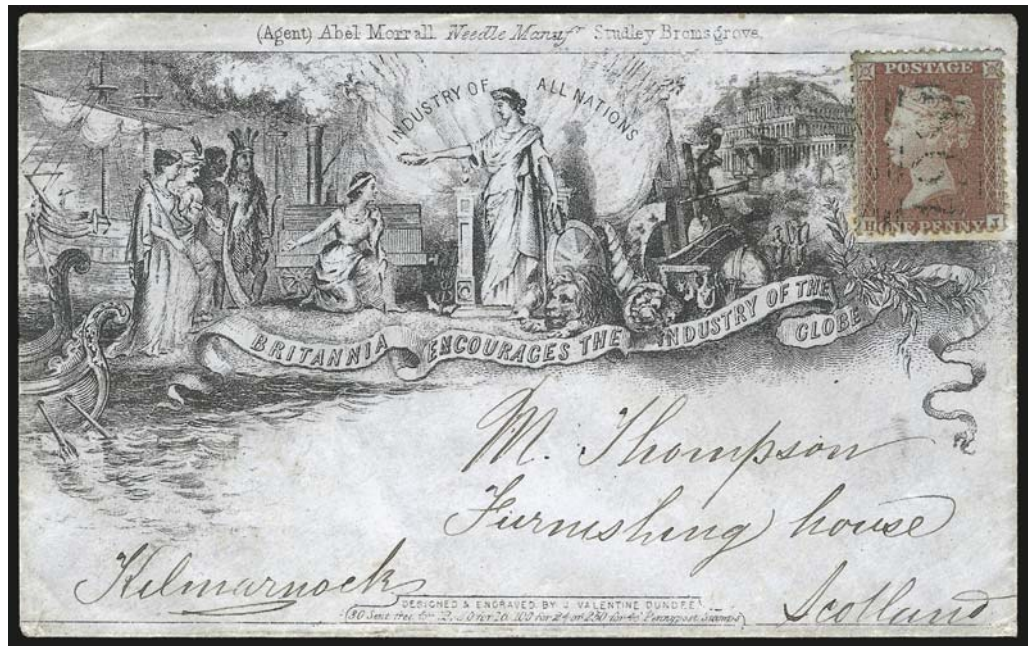 (Agent) Abel Morrall. Needle Manufr Studley Bromsgrove.
INDUSTRY OF ALL NATIONS
POSTAGE
H ONE PENNY J
BRITANNIA ENCOURAGES THE INDUSTRY OF THE GLOBE
M. Thompson
Furnishing house
Kilmarnock
Scotland
DESIGNED & ENGRAVED BY J. VALENTINE DUNDEE
30 Sent free for 100 for 24 or 250 for Penny post Stamps